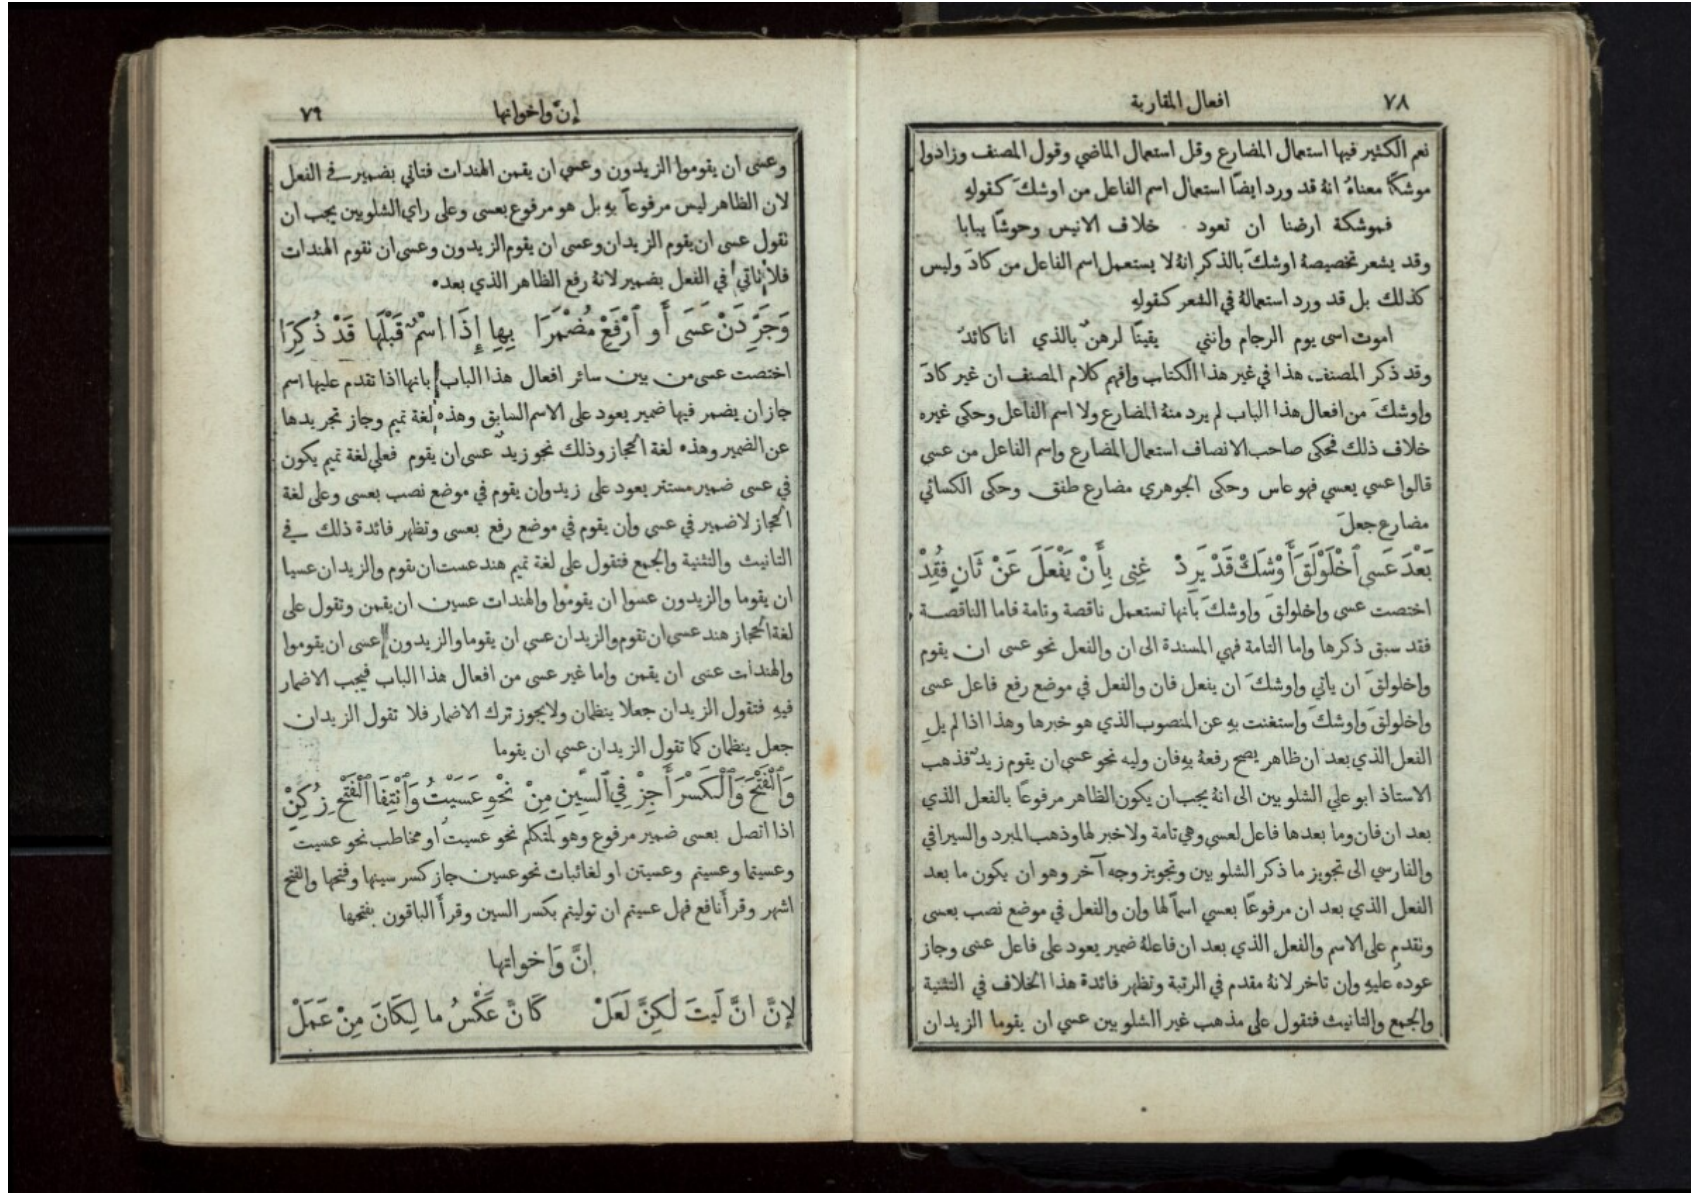 ٧٨
افعال المقاربة
نعم الكثير فيها استعمال المضارع وقل استعمال الماضي وقول المصنف وزادوا
موشكًا معناهُ انهُ قد ورد ايضًا استعمال اسم الفاعل من اوشكَ كقولهِ
فموشكة ارضنا ان تعود خلاف الانيس وحوشًا يبابا
وقد يشعر تخصيصهُ اوشكَ بالذكر انهُ لا يستعمل اسم الفاعل من كادَ وليس
كذلك بل قد ورد استعمالهُ في الشعر كقولهِ
اموت اسى يوم الرجام وانني يقينًا لرهنٌ بالذي انا كائدُ
وقد ذكر المصنف هذا في غير هذا الكتاب وافهم كلام المصنف ان غير كادَ
واوشكَ من افعال هذا الباب لم يرد منهُ المضارع ولا اسم الفاعل وحكى غيره
خلاف ذلك فحكى صاحب الانصاف استعمال المضارع واسم الفاعل من عسى
قالوا عسي يعسي فهو عاس وحكى الجوهري مضارع طفق وحكى الكسائي
مضارع جعلَ
بَعْدَ عَسَى ٱخْلَوْلَقَ أَوْشَكْ قَدْ يَرِدْ غِنى بِأَنْ يَفْعَلَ عَنْ ثَانٍ فُقِدْ
اختصت عسى واخلولقَ واوشكَ بانها تستعمل ناقصة وتامة فاما الناقصة
فقد سبق ذكرها واما التامة فهي المسندة الى ان والفعل نحو عسى ان يقوم
واخلولقَ ان ياتي واوشكَ ان يفعل فان والفعل في موضع رفع فاعل عسى
واخلولقَ واوشكَ واستغنت بهِ عن المنصوب الذي هو خبرها وهذا اذا لم يلِ
الفعل الذي بعد ان ظاهر يصح رفعهُ بهِ فان وليه نحو عسى ان يقوم زيدٌ فذهب
الاستاذ ابو علي الشلوبين الى انهُ يجب ان يكون الظاهر مرفوعًا بالفعل الذي
بعد ان فان وما بعدها فاعل لعسى وهي تامة ولا خبر لها وذهب المبرد والسيرافي
والفارسي الى تجويز ما ذكر الشلوبين وتجويز وجه آخر وهو ان يكون ما بعد
الفعل الذي بعد ان مرفوعًا بعسي اسمًا لها وان والفعل في موضع نصب بعسى
وتقدم على الاسم والفعل الذي بعد ان فاعلهُ ضمير يعود على فاعل عسى وجاز
عودهُ عليهِ وان تاخر لانهُ مقدم في الرتبة وتظهر فائدة هذا الخلاف في التثنية
والجمع والتانيث فتقول على مذهب غير الشلوبين عسى ان يقوما الزيدان
إنّ واخواتها
٧٩
وعسى ان يقوموا الزيدون وعسي ان يقمن الهندات فتاتي بضمير في الفعل
لان الظاهر ليس مرفوعاً بهِ بل هو مرفوع بعسى وعلى راي الشلوبين يجب ان
تقول عسى ان يقوم الزيدان وعسى ان يقوم الزيدون وعسى ان تقوم الهندات
فلا تاتي في الفعل بضمير لانهُ رفع الظاهر الذي بعده
وَجَرِّدَنْ عَسَى أَو ٱرْفَعْ مُضْمَرَا بِهَا إِذَا اسْمٌ قَبْلَهَا قَدْ ذُكِرَا
اختصت عسى من بين سائر افعال هذا الباب بانها اذا تقدم عليها اسم
جاز ان يضمر فيها ضمير يعود على الاسم السابق وهذه لغة تميم وجاز تجريدها
عن الضمير وهذه لغة الحجاز وذلك نحو زيدٌ عسى ان يقوم فعلي لغة تميم يكون
في عسى ضمير مستتر يعود على زيد وان يقوم في موضع نصب بعسى وعلى لغة
الحجاز لا ضمير في عسى وان يقوم في موضع رفع بعسى وتظهر فائدة ذلك في
التانيث والتثنية والجمع فتقول على لغة تميم هند عست ان تقوم والزيدان عسيا
ان يقوما والزيدون عسوا ان يقوموا والهندات عسين ان يقمن وتقول على
لغة الحجاز هند عسى ان تقوم والزيدان عسى ان يقوما والزيدون عسى ان يقوموا
والهندات عسى ان يقمن واما غير عسى من افعال هذا الباب فيجب الاضمار
فيهِ فتقول الزيدان جعلا ينظمان ولا يجوز ترك الاضمار فلا تقول الزيدان
جعل ينظمان كما تقول الزيدان عسى ان يقوما
وَٱلْفَتْحَ وَٱلْكَسْرَ أَجِزْ فِي ٱلسِّينِ مِنْ نَحْوِ عَسَيْتُ وَٱنْتِقَا ٱلْفَتْحِ زُكِنْ
اذا اتصل بعسى ضمير مرفوع وهو لمتكلم نحو عسيتُ او مخاطب نحو عسيت
وعسيتما وعسيتم وعسيتن او لغائبات نحو عسين جاز كسر سينها وفتحها والفتح
اشهر وقرأ نافع فهل عسيتم ان توليتم بكسر السين وقرأ الباقون بفتحها
إنَّ وَاخواتها
لإِنَّ انَّ لَيتَ لٰكِنَّ لَعَلْ كَانَّ عَكْسُ ما لِكَانَ مِنْ عَمَلْ